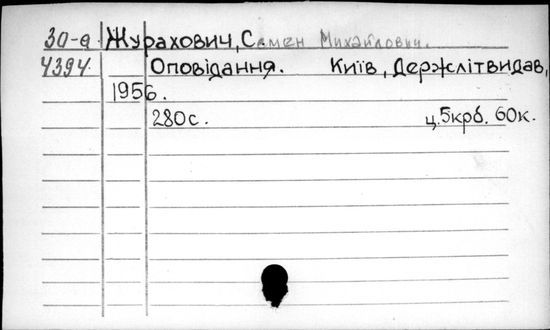 30-а Журахович, Семен Михайлович.
4394 Оповідання. Київ, Держлітвидав,
1956.
280с. ц.5крб. 60к.